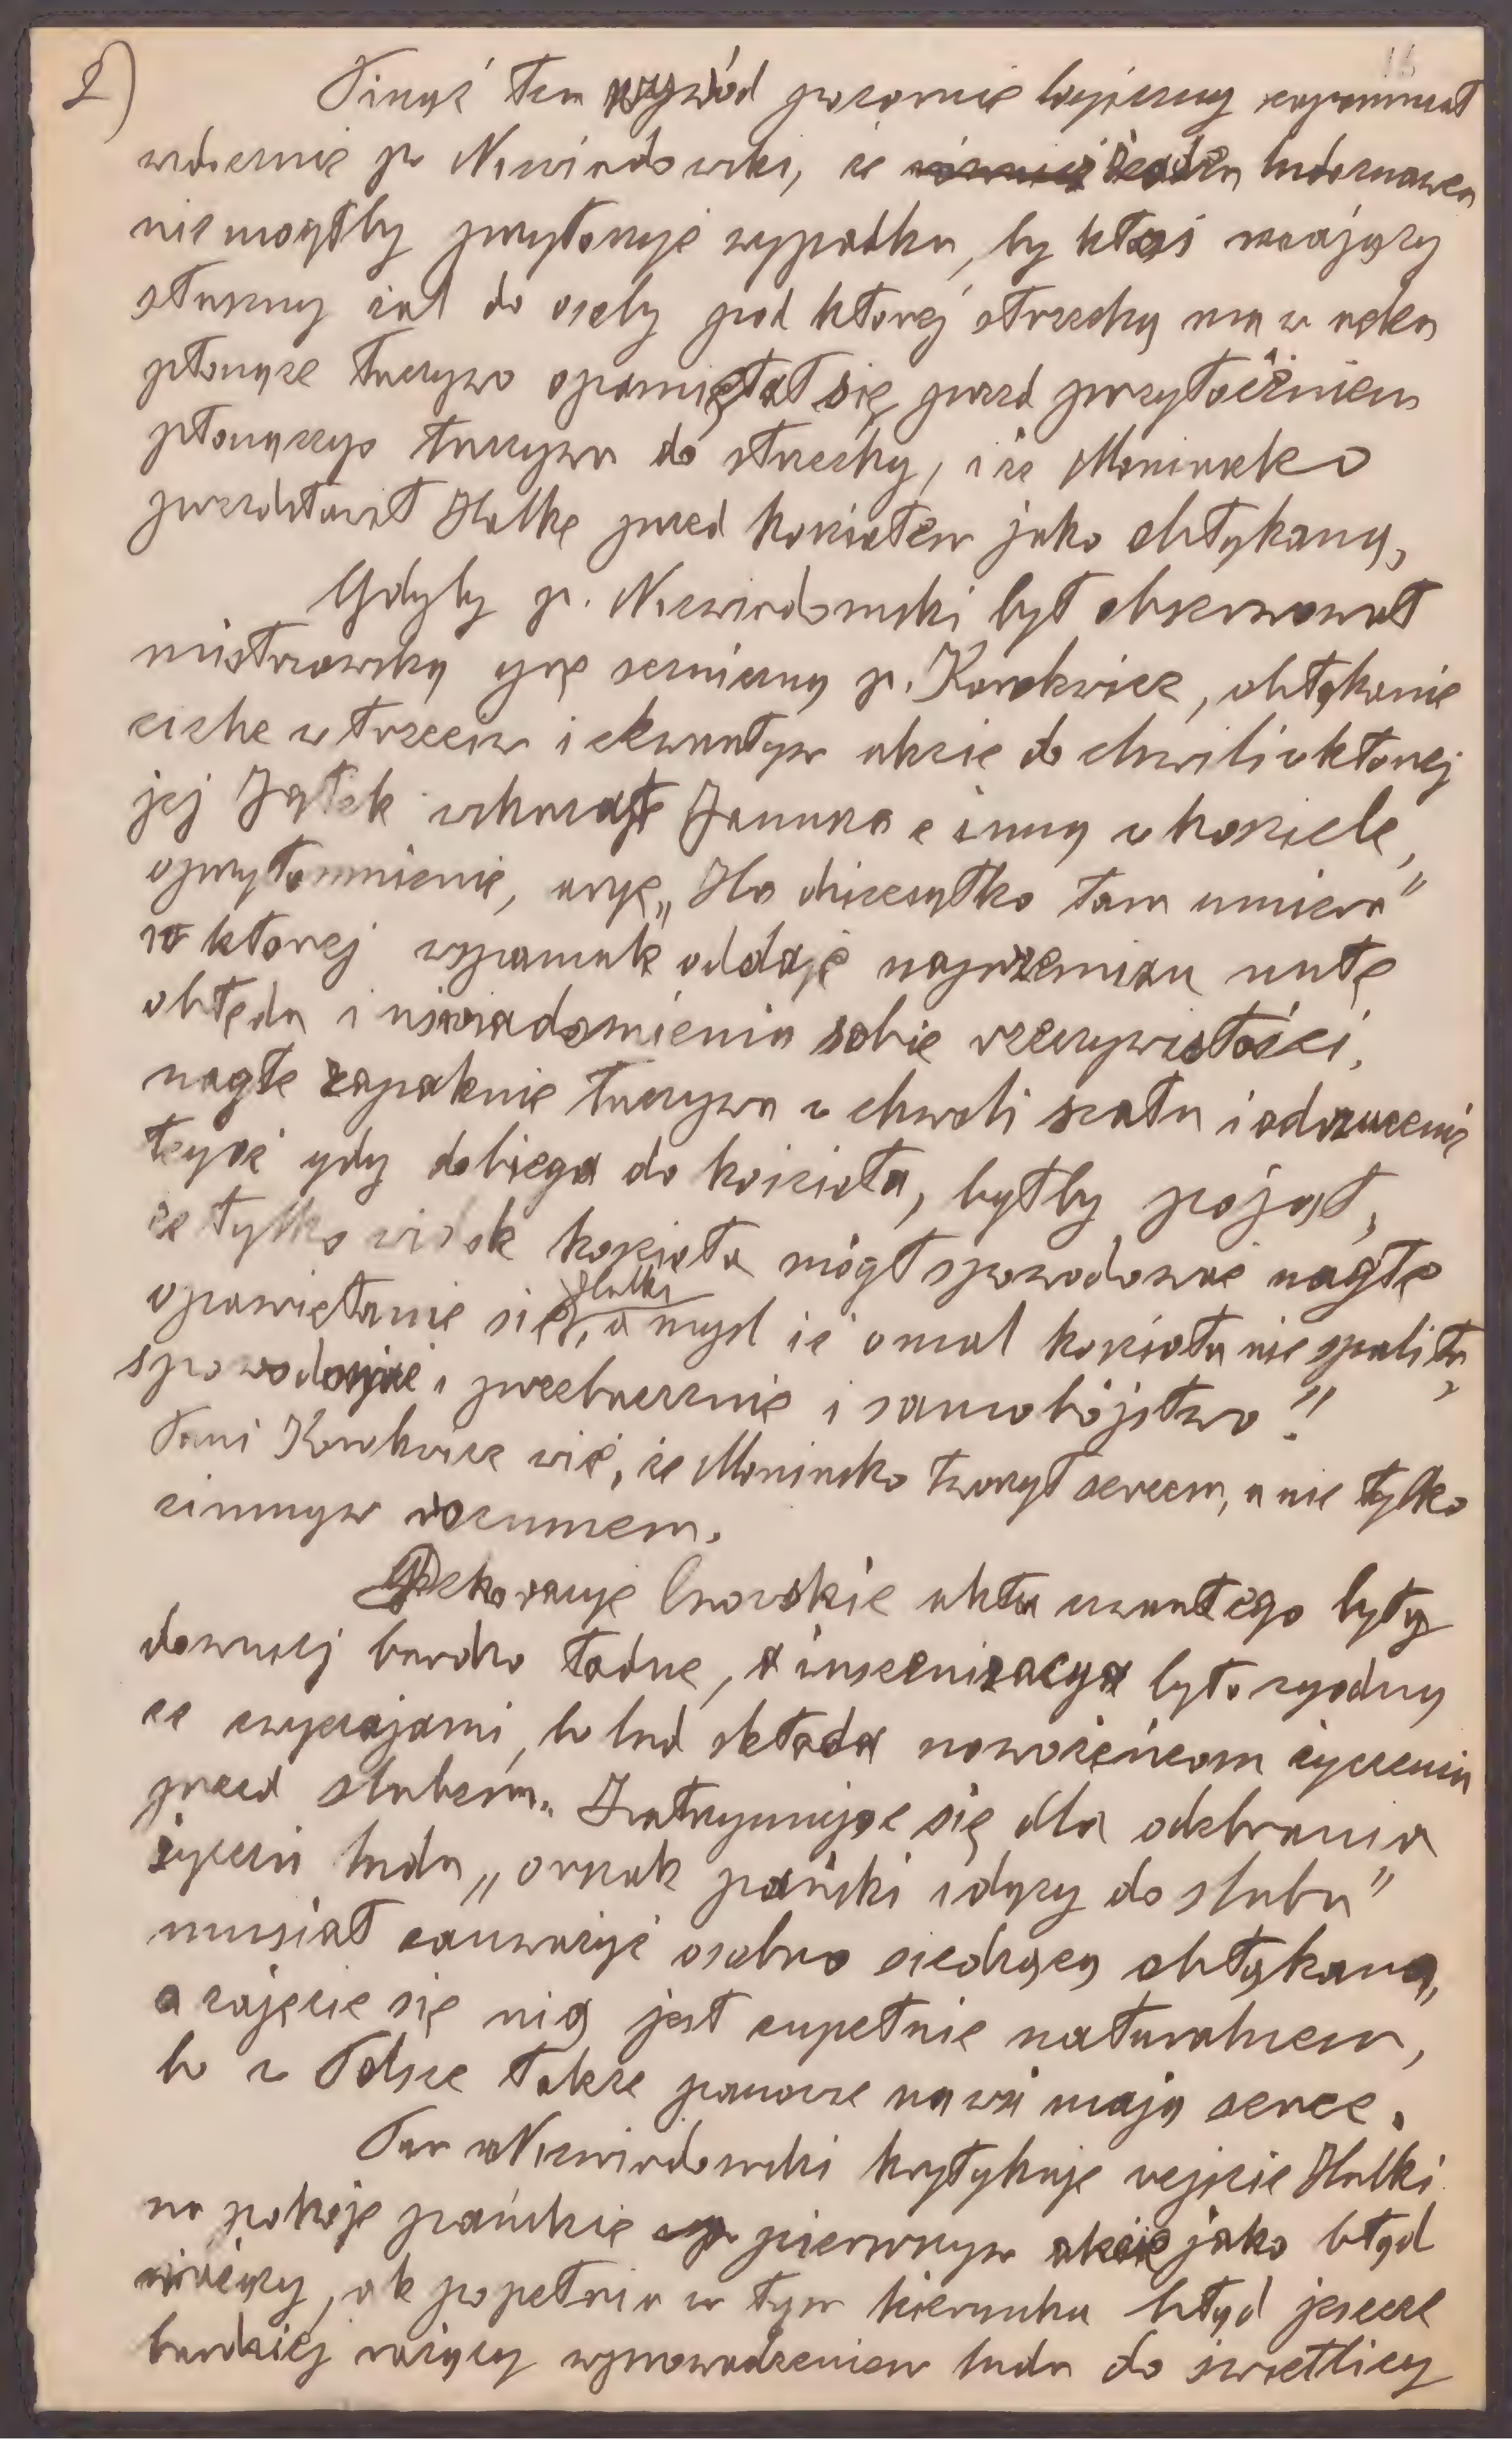 2)
16
Pisząc ten wywód pozornie logiczny zapomniał
widocznie p. Niewiadowski, że żaden ludoznawca
nie mógłby przytoczyć wypadku, by ktoś mający
słuszny żal do osoby pod której strzechą ma w ręku
płonące łuczywo opamiętał się przed przytocznieniem
płonącego łuczywa do strzechy, i że Moniuszko
przedstawił Halkę przed kościołem jako obłąkaną,
Gdyby p. Niewiadomski był obserwował
mistrzowską grę sceniczną p. Korolewicz, obłąkanie
ciche w trzecim i czwartym akcie do chwili w której
jej Jątek wskazał Janusza z inną w kościele,
oprzytomnienie, aryę „Ha dzieciątko tam umiera"
w której wspaniale oddaje naprzemian nutę
obłędu i uświadomienia sobie rzeczywistości,
nagłe zapalenie łuczywa w chwili szału i odrzucenie
tegoż gdy dobiega do kościoła, byłby pojął,
że tylko widok kościoła mógł spowodować nagłe
opamiętanie się Halki, a myśl iż omal kościoła nie spaliła,
spowodować i przebaczenie i samobójstwo!"
Pani Korolewicz wie, że Moniuszko tworzył sercem, a nie tylko
zimnym rozumem.
Dekoracje lwowskie aktu czwartego były
dawniej bardzo ładne, a inscenizacya była zgodną
ze zwyczajami, bo lud składa nowożeńcom życzenia
przed ślubem. Zatrzymując się dla odebrania
życzeń ludu „orszak pański idący do ślubu"
musiał zauważyć osobno siedzącą obłąkaną,
a zajęcie się nią jest zupełnie naturalnem,
bo w Polsce także panowie na wsi mają serce.
Pan Niewiadowski krytykuje wejście Halki
na pokoje pańskie pierwszym akcie jako błąd
rażący, ale popełnia w tym kierunku błąd jeszcze
bardziej rażący wprowadzeniem ludu do świetlicy